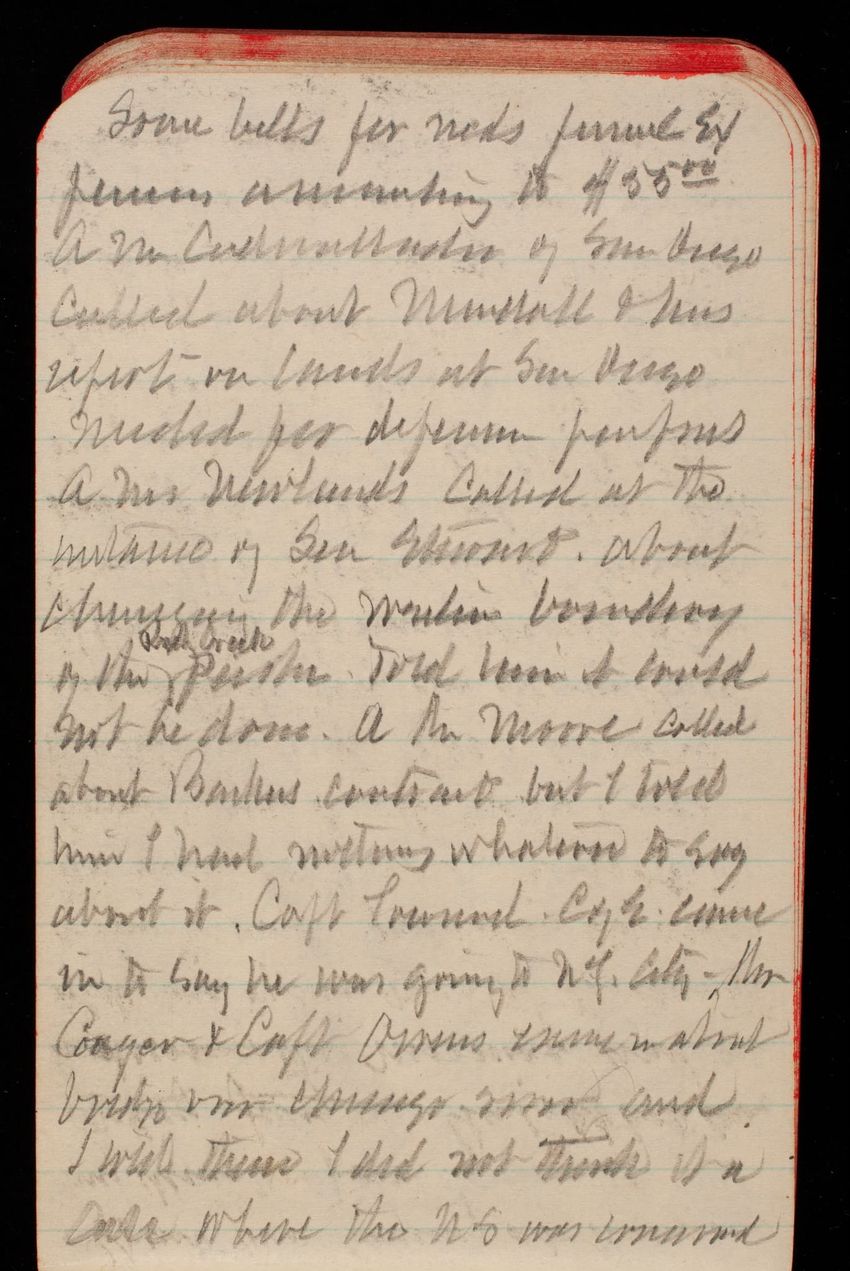 Some bills for Neds funeral Ex
penses amounting to $55.00
A Mr of San Diego
Called about Mendall & his
report on lands at San Diego
needed for defense purposes
A Mr Newlands Called at the
instance of Sen Stewart. about
changing the boundary
of the Rock Creek Park. Told him it could
not be done. A Mr Moore called
about Backus contract but I told
him I had nothing whatever to say
about it. Capt Townsend. C of E. came
in to say he was going to N.Y. City - Mr
Conger & Capt Owens came in about
bridge over Chicago river and
I told them I did not think it a
Case where the U S was concerned